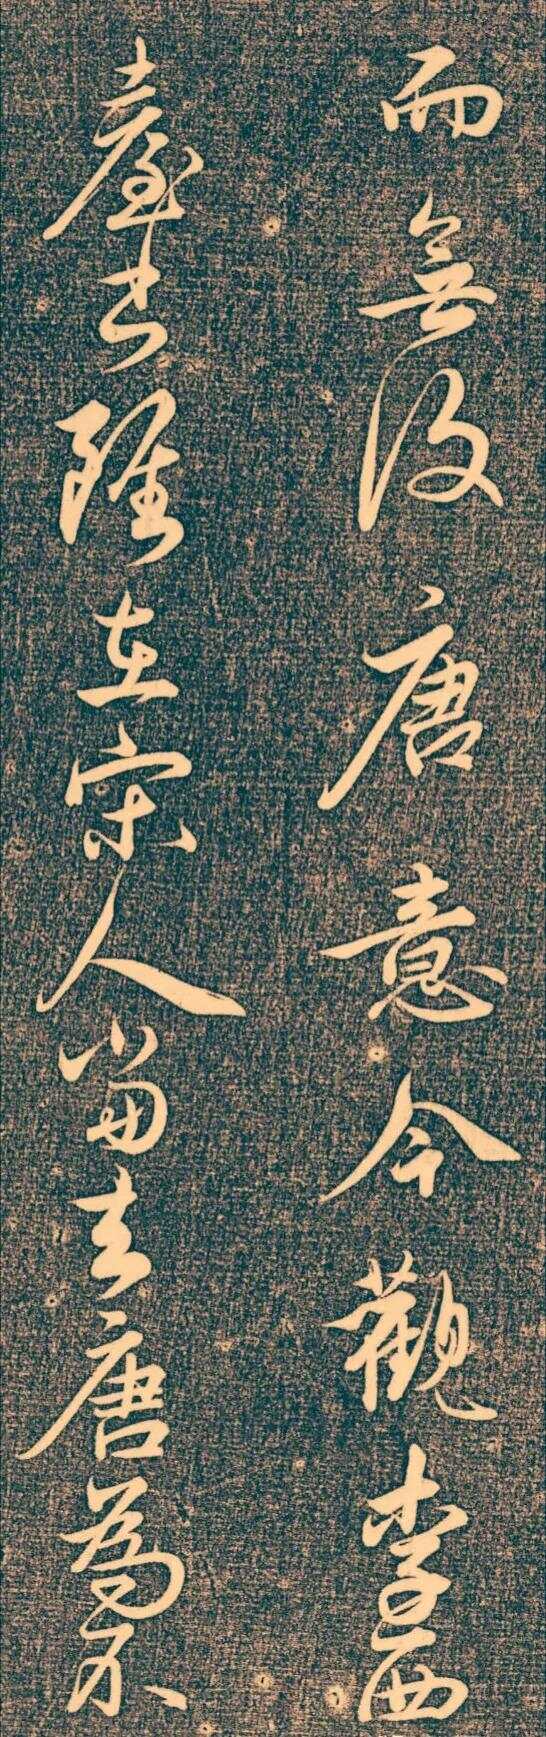 而無復唐意今觀李西
臺書雖在宋人當去唐為不